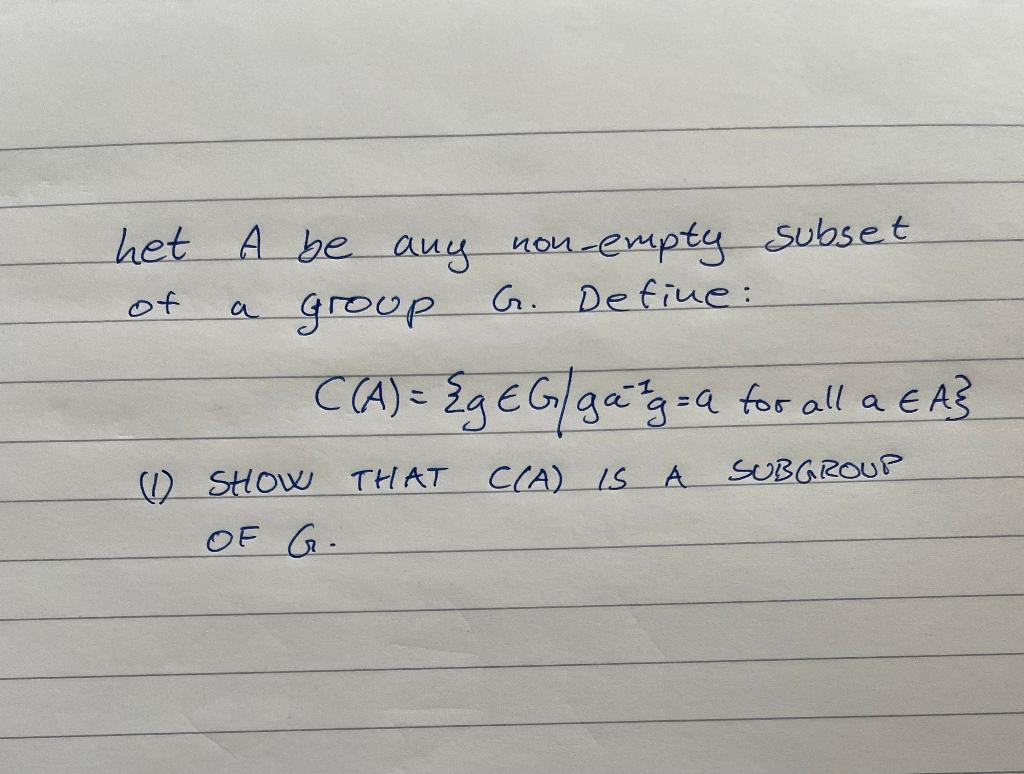 Let A be any non-empty subset
of a group G. Define:
C(A) = {g ∈ G | ga⁻¹g = a for all a ∈ A}
(1) SHOW THAT C(A) IS A SUBGROUP
OF G.